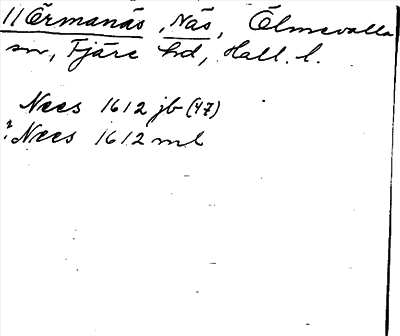 11 Örmanäs, Näs, Ölmevalla
sn, Fjäre hd, Hall. l.
Nees 1612 jb (47)
? Nees 1612 ml